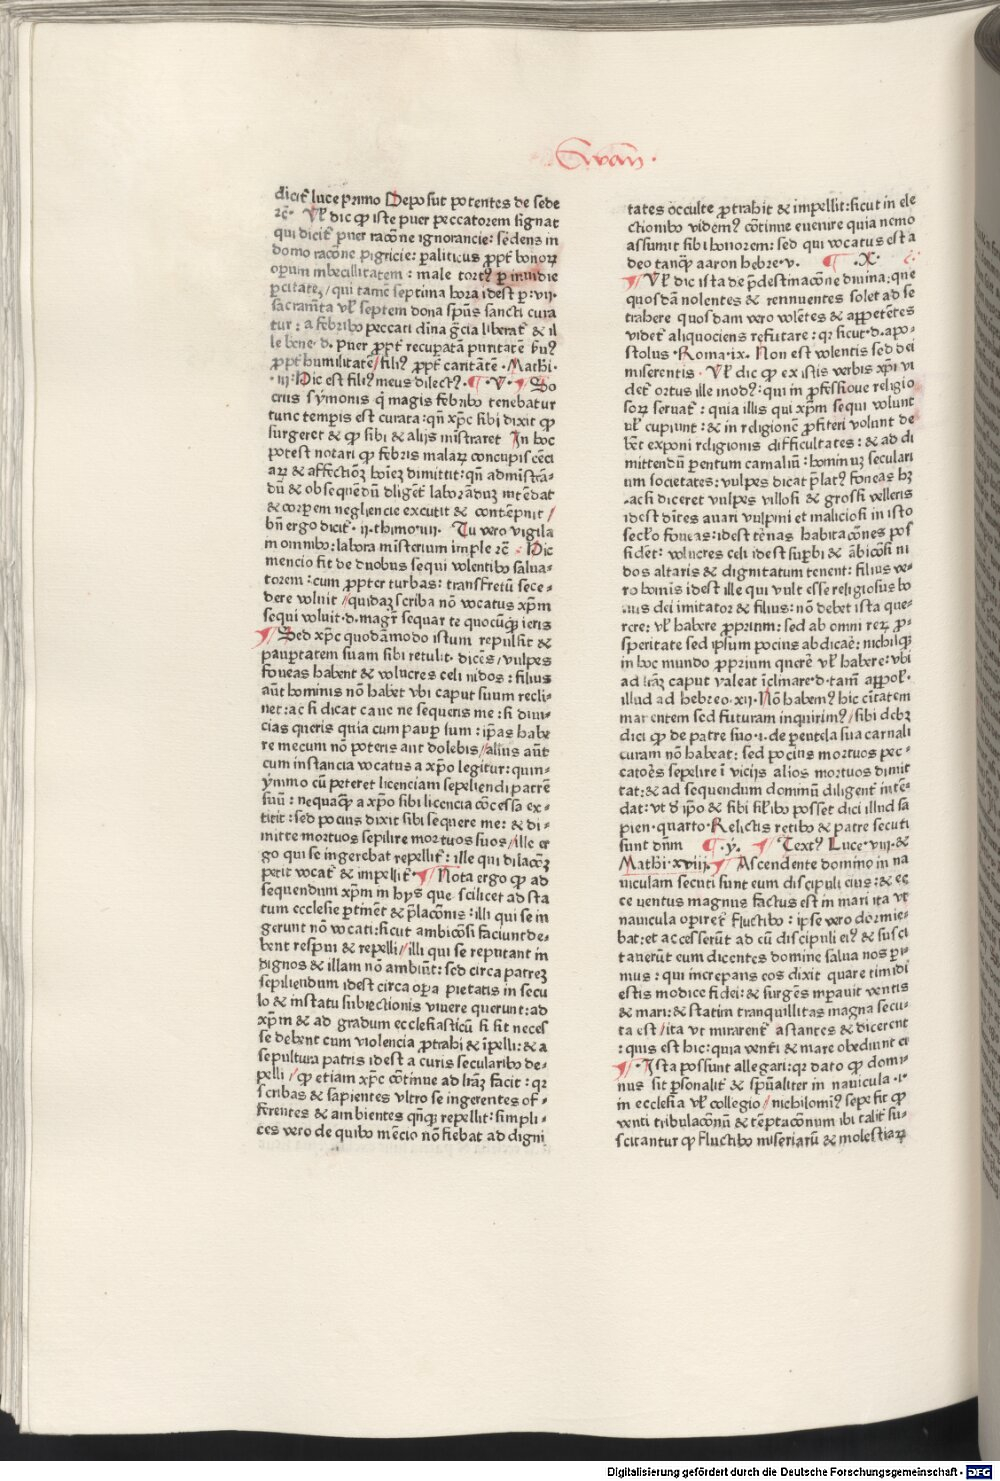 Ewan̄.
dicit᷑ luce primo Deposuit potentes de sede
⁊c̄. Vl̄ dic ꝙ iste puer peccatorem signat
qui dicit᷑ puer racōne ignorancie: sedens in
domo racōne pigricie: paliticus ꝓpt᷑ bonoꝝ
operum imbecillitatem: male tortꝰ ꝑ inuidie
qui tamē septima hora idest ꝑ .vii.
sacramēta vl̄ septem dona spūs sancti cura
tur: a febribꝰ peccati diīna gr̄cia liberat᷑ & il
le bene .d. puer ꝓpt᷑ recuperatā puritatē
ꝓpt᷑ humilitatē/ filiꝰ ꝓpt᷑ caritatē .Mathi.
.iii. Hic est filiꝰ meus dilectꝰ. ¶ .V. ¶ So
crus symonis q̄ magis febribꝰ tenebatur
tunc temꝑis est curata: qn̄ xp̄c sibi dixit ꝙ
surgeret & ꝙ sibi & alijs mīstraret In hoc
potest notari ꝙ febris malaꝝ concupiscēci
aꝝ & affectionū hoīez dimittit: qn̄ admīstrā
dū & obsequēdū diligēt᷑ laborāduꝫ intēdat
& corꝑem negliencie excutit & contēpnit/
bn̄ ergo dicit᷑ .ii. thimo. iiii. Tu vero vigila
in omnibꝰ: labora misterium imple ⁊c̄. Hic
mencio fit de duobus sequi volentibꝰ salua-
torem: cum ꝓpter turbas: transfretū sece-
dere voluit/ quidaꝫ scriba nō vocatus xp̄m
sequi voluit .d. magr̄ sequar te quocūqꝫ ieris
¶ Sed xp̄c quodāmodo istum repulsit &
pauꝑtatem suam sibi retulit dicēs/ vulpes
foueas habent & volucres celi nidos: filius
aūt hominis nō habet vbi caput suum recli-
net: ac si dicat caue ne sequeris me: si diui-
cias queris quia cum pauꝑ sum: ip̄as habe
re mecum nō poteris aut dolebis/ alius aūt
cum instancia vocatus a xp̄o legitur: quin-
ymmo cū peteret licenciam sepeliendi patrē
suū: nequaqꝫ a xp̄o sibi licencia cōcessa ex-
titit: sed pocius dixit sibi sequere me: & di-
mitte mortuos sepilire mortuos suos/ ille er
go qui se ingerebat repellit᷑: ille qui dilacōeꝫ
petit vocat᷑ & impellit᷑. ¶ Nota ergo ꝙ ad
sequendum xp̄m in hijs que scilicet ad sta
tum ecclesie ꝑtinēt & p̄lacōnis: illi qui se in
gerunt nō vocati: sicut ambicōsi faciunt de-
bent respui & repelli/ illi qui se reputant in
dignos & illam nō ambiūt: sed circa patreꝫ
sepiliendum idest circa oꝑa pietatis in secu
lo & in statu subiectionis viuere querunt: ad
xp̄m & ad gradum ecclesiasticū si sit neces
se debent cum violencia ꝓtrahi & īpelli: & a
sepultura patris idest a curis secularibꝰ de-
pelli/ ꝙ etiam xp̄c cōtinue ad lr̄aꝫ facit: qꝛ
scribas & sapientes vltro se ingerentes of-
ferentes & ambientes qn̄qꝫ repellit: simpli-
ces vero de quibꝰ mēcio nō fiebat ad digni
tates occulte ꝓtrahit & impellit: sicut in ele
ctionibꝰ videmꝰ cōtinue euenire quia nemo
assumit sibi honorem: sed qui vocatus est a
deo tanqꝫ aaron hebre. v. ¶ .X.
¶ Vl̄ dic ista de p̄destinacōne diuina: que
quosdā nolentes & rennuentes solet ad se
trahere quosdam vero volētes & appetētes
videt᷑ aliquociens refutare: qꝛ sicut .d. apo-
stolus .Roma. ix. Non est volentis sed dei
miserentis. Vl̄ dic ꝙ ex istis verbis xp̄i vi
det᷑ ortus ille modꝰ: qui in ꝓfessione religio
soꝝ seruat᷑: quia illis qui xp̄m sequi volunt
vl̄ cupiunt: & in religionē ꝓfiteri volunt de
bēt exponi religionis difficultates: & ad di
mittendū ꝑentum carnaliū: hominuꝫ seculari
um societates: vulpes dicat p̄latꝰ foueas hꝫ
.ac si diceret vulpes villosi & grossi velleris
idest dītes auari vulpini et maliciosi in isto
seclo foueas: idest terrenas habitacōnes pos
sident: volucres celi idest suꝑbi & ābicōsi ni
dos altaris & dignitatum tenent: filius ve-
ro homīs idest ille qui vult esse religiosus bo
nus dei imitator & filius: nō debet ista que-
rere: vl̄ habere ꝓprium: sed ab omni reꝝ ꝓ-
speritate sed ipsum pocius abdicare: nichilqꝫ
in hoc mundo ꝓprium querē vl̄ habere: vbi
ad lr̄aꝫ caput valeat īclinare .d. tam̄ appok̄.
illud ad hebreo. xii. Nō habemꝰ hic ciītatem
manentem sed futuram inquirimꝰ/ sibi debꝫ
dici ꝙ de patre suo .i. de ꝑentela sua carnali
curam nō habeat: sed pocius mortuos pec-
catores sepelire ī vicijs alios mortuos dimit
tat: & ad sequendum dominū diligent᷑ intē-
dat: vt de ip̄o & sibi silibꝰ posset dici illud sa
pien. quarto. Relictis retibꝰ & patre secuti
sunt dn̄m ¶ .y. ¶ Textꝰ Luce .viii. &
Mathi. xviii. ¶ Ascendente domino in na
uiculam secuti sunt eum discipuli eius: & ec
ce uentus magnus factus est in mari ita vt
nauicula operiret᷑ fluctibꝰ: ipse vero dormie-
bat: et accesserūt ad eū discipuli eiꝰ & susci
tauerūt eum dicentes domine salua nos ꝑi-
mus: qui increpans eos dixit quare timidi
estis modice fidei: & surgēs imꝑauit ventis
& mari: & statim tranquillitas magna secu-
ta est/ ita vt mirarent᷑ astantes & dicerent
: quis est hic: quia venti & mare obediunt ei
¶ Ista possunt allegari: qꝛ dato ꝙ domi-
nus sit ꝑsonalit᷑ & spūaliter in nauicula .i.
in ecclesia vl̄ collegio/ nichilominꝰ sepe fit ꝙ
venti tribulacōnū & tēptacōnum ibi talit᷑ su-
scitantur ꝙ fluctibꝰ miseriarū & molestiaꝝ
Digitalisierung gefördert durch die Deutsche Forschungsgemeinschaft - DFG